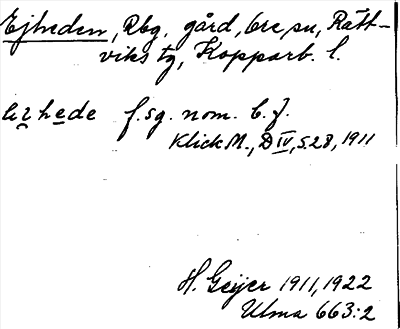 Ejheden, Rbg. gård, Ore sn, Rätt-
viks tg, Kopparb. l.
hede f. sg. nom. b. f.
Klick M., D IV, s. 28, 1911
H. Geijer 1911, 1922
Ulma 663:2